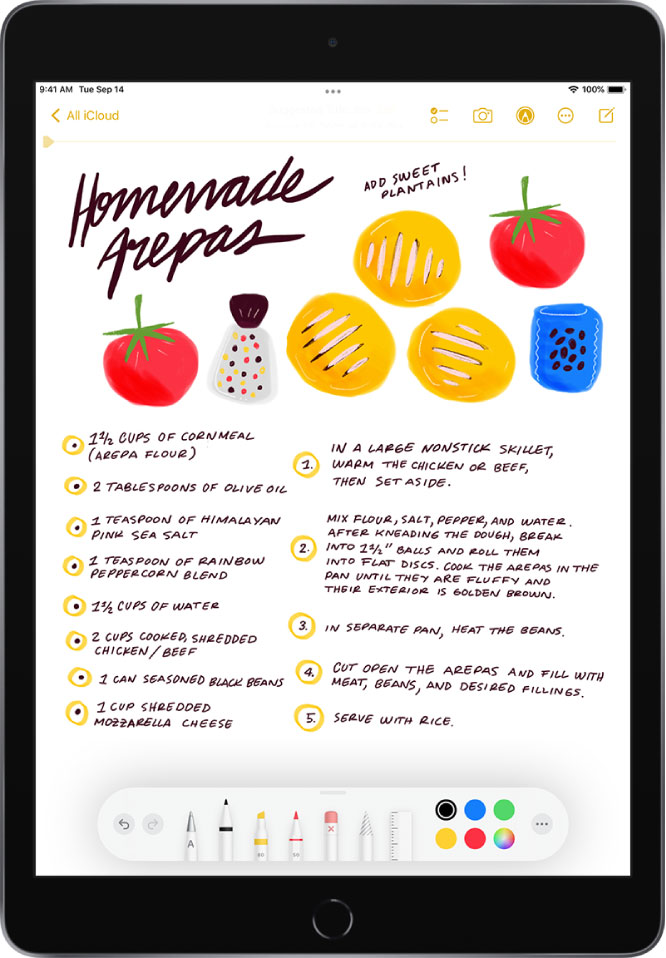 9:41 AM Tue Sep 14
100%
All iCloud
Homemade
Arepas
ADD SWEET
PLANTAINS!
1 1/2 CUPS OF CORNMEAL
(AREPA FLOUR)
2 TABLESPOONS OF OLIVE OIL
1 TEASPOON OF HIMALAYAN
PINK SEA SALT
1 TEASPOON OF RAINBOW
PEPPERCORN BLEND
1 1/2 CUPS OF WATER
2 CUPS COOKED, SHREDDED
CHICKEN/BEEF
1 CAN SEASONED BLACK BEANS
1 CUP SHREDDED
MOZZARELLA CHEESE
1. IN A LARGE NONSTICK SKILLET,
WARM THE CHICKEN OR BEEF,
THEN SET ASIDE.
2. MIX FLOUR, SALT, PEPPER, AND WATER.
AFTER KNEADING THE DOUGH, BREAK
INTO 1 1/2" BALLS AND ROLL THEM
INTO FLAT DISCS. COOK THE AREPAS IN THE
PAN UNTIL THEY ARE FLUFFY AND
THEIR EXTERIOR IS GOLDEN BROWN.
3. IN SEPARATE PAN, HEAT THE BEANS.
4. CUT OPEN THE AREPAS AND FILL WITH
MEAT, BEANS, AND DESIRED FILLINGS.
5. SERVE WITH RICE.
A
80
50